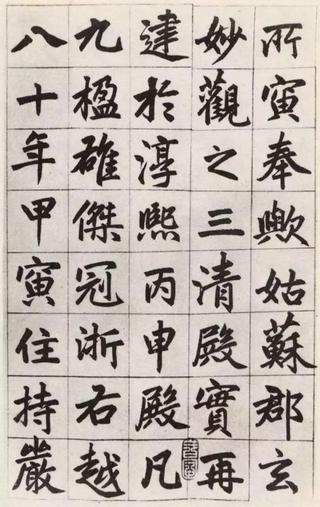 所寅奉歟姑蘇郡玄
妙觀之三清殿實再
建於淳熙丙申殿凡
九楹雄傑冠浙右越
八十年甲寅住持嚴